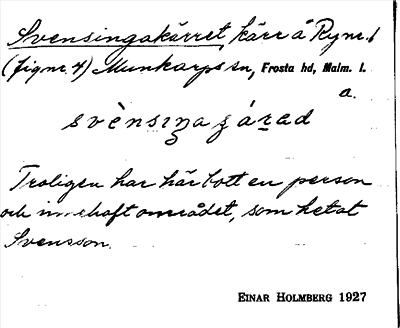 Svensingakärret, kärr å Ry nr. 1
(fig nr. 4) Munkarps sn, Frosta hd, Malm. l.
a.
svènsiŋa ʒáꞧad
Troligen har här bott en person
och innehaft området, som hetat
Svensson.
EINAR HOLMBERG 1927